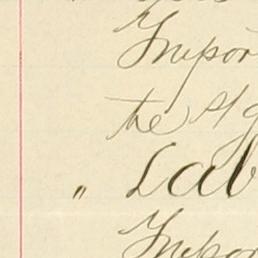 Impor
the Ag
" Lab
Impor